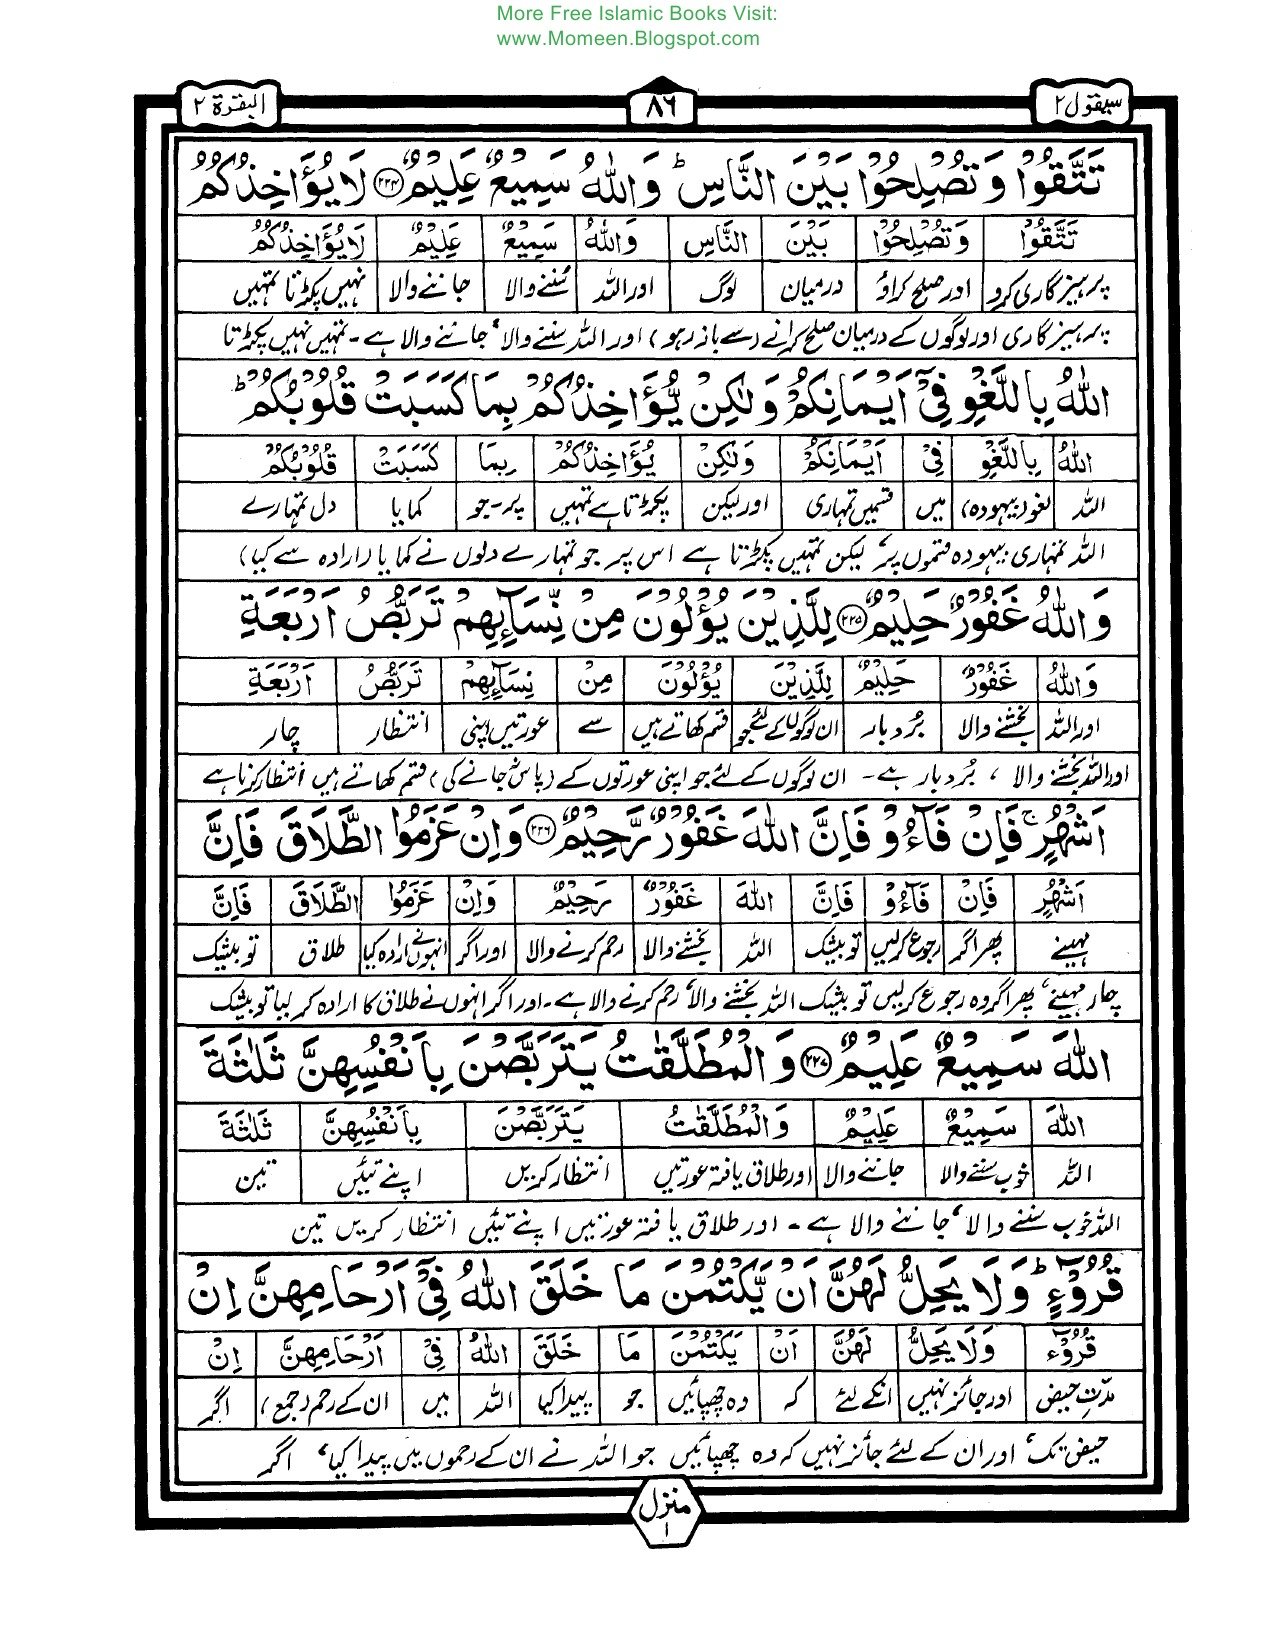 More Free Islamic Books Visit:
www.Momeen.Blogspot.com
سيقول ٢
٨٦
البقرة ٢
تَتَّقُوْا وَ تُصْلِحُوْا بَيْنَ النَّاسِ ؕ وَ اللّٰهُ سَمِيْعٌ عَلِيْمٌ ﴿۲۲۴﴾ لَا يُؤَاخِذُكُمُ
تَتَّقُوْا وَ تُصْلِحُوْا بَيْنَ النَّاسِ وَ اللّٰهُ سَمِيْعٌ عَلِيْمٌ لَا يُؤَاخِذُكُمُ
پرہیزگاری کرو اور صلح کراؤ درمیان لوگ اور اللہ سُننے والا جاننے والا نہیں پکڑتا تمہیں
پرہیزگاری اور لوگوں کے درمیان صلح کرانے (سے باز رہو) اور اللہ سننے والا، جاننے والا ہے۔ تمہیں نہیں پکڑتا
اللّٰهُ بِاللَّغْوِ فِيْۤ اَيْمَانِكُمْ وَ لٰكِنْ يُّؤَاخِذُكُمْ بِمَا كَسَبَتْ قُلُوْبُكُمْ ؕ
اللّٰهُ بِاللَّغْوِ فِيْ اَيْمَانِكُمْ وَ لٰكِنْ يُؤَاخِذُكُمْ بِمَا كَسَبَتْ قُلُوْبُكُمْ
اللہ لغو (بیہودہ) میں قسمیں تمہاری اور لیکن پکڑتا ہے تمہیں پر۔جو کمایا دل تمہارے
اللہ تمہاری بیہودہ قسموں پر، لیکن تمہیں پکڑتا ہے اس پر جو تمہارے دلوں نے کمایا (ارادہ سے کیا)
وَ اللّٰهُ غَفُوْرٌ حَلِيْمٌ ﴿۲۲۵﴾ لِلَّذِيْنَ يُؤْلُوْنَ مِنْ نِّسَآىِٕهِمْ تَرَبُّصُ اَرْبَعَةِ
وَ اللّٰهُ غَفُوْرٌ حَلِيْمٌ لِلَّذِيْنَ يُؤْلُوْنَ مِنْ نِسَآىِٕهِمْ تَرَبُّصُ اَرْبَعَةِ
اور اللہ بخشنے والا بُردبار ان لوگوں کے لئے جو قسم کھاتے ہیں سے عورتیں اپنی انتظار چار
اور اللہ بخشنے والا ، بُردبار ہے۔ ان لوگوں کے لئے جو اپنی عورتوں کے (پاس جانے کی) قسم کھاتے ہیں انتظار کرنا ہے
اَشْهُرٍ ۚ فَاِنْ فَآءُوْ فَاِنَّ اللّٰهَ غَفُوْرٌ رَّحِيْمٌ ﴿۲۲۶﴾ وَ اِنْ عَزَمُوا الطَّلَاقَ فَاِنَّ
اَشْهُرٍ فَاِنْ فَآءُوْ فَاِنَّ اللّٰهَ غَفُوْرٌ رَحِيْمٌ وَ اِنْ عَزَمُوا الطَّلَاقَ فَاِنَّ
مہینے پھر اگر رجوع کرلیں تو بیشک اللہ بخشنے والا رحم کرنے والا اور اگر انہوں نے ارادہ کیا طلاق تو بیشک
چار مہینے، پھر اگر وہ رجوع کرلیں تو بیشک اللہ بخشنے والا، رحم کرنے والا ہے۔ اور اگر انہوں نے طلاق کا ارادہ کر لیا تو بیشک
اللّٰهَ سَمِيْعٌ عَلِيْمٌ ﴿۲۲۷﴾ وَ الْمُطَلَّقٰتُ يَتَرَبَّصْنَ بِاَنْفُسِهِنَّ ثَلٰثَةَ
اللّٰهَ سَمِيْعٌ عَلِيْمٌ وَ الْمُطَلَّقٰتُ يَتَرَبَّصْنَ بِاَنْفُسِهِنَّ ثَلٰثَةَ
اللہ خوب سننے والا جاننے والا اور طلاق یافتہ عورتیں انتظار کریں اپنے تئیں تین
اللہ خوب سننے والا، جاننے والا ہے ۔ اور طلاق یافتہ عورتیں اپنے تئیں انتظار کریں تین
قُرُوْٓءٍ ؕ وَ لَا يَحِلُّ لَهُنَّ اَنْ يَّكْتُمْنَ مَا خَلَقَ اللّٰهُ فِيْۤ اَرْحَامِهِنَّ اِنْ
قُرُوْٓءٍ وَ لَا يَحِلُّ لَهُنَّ اَنْ يَكْتُمْنَ مَا خَلَقَ اللّٰهُ فِيْ اَرْحَامِهِنَّ اِنْ
مدّتِ حیض اور جائز نہیں انکے لئے کہ وہ چھپائیں جو پیدا کیا اللہ میں ان کے رحم (جمع) اگر
حیض تک، اور ان کے لئے جائز نہیں کہ وہ چھپائیں جو اللہ نے ان کے رحموں میں پیدا کیا، اگر
منزل
١